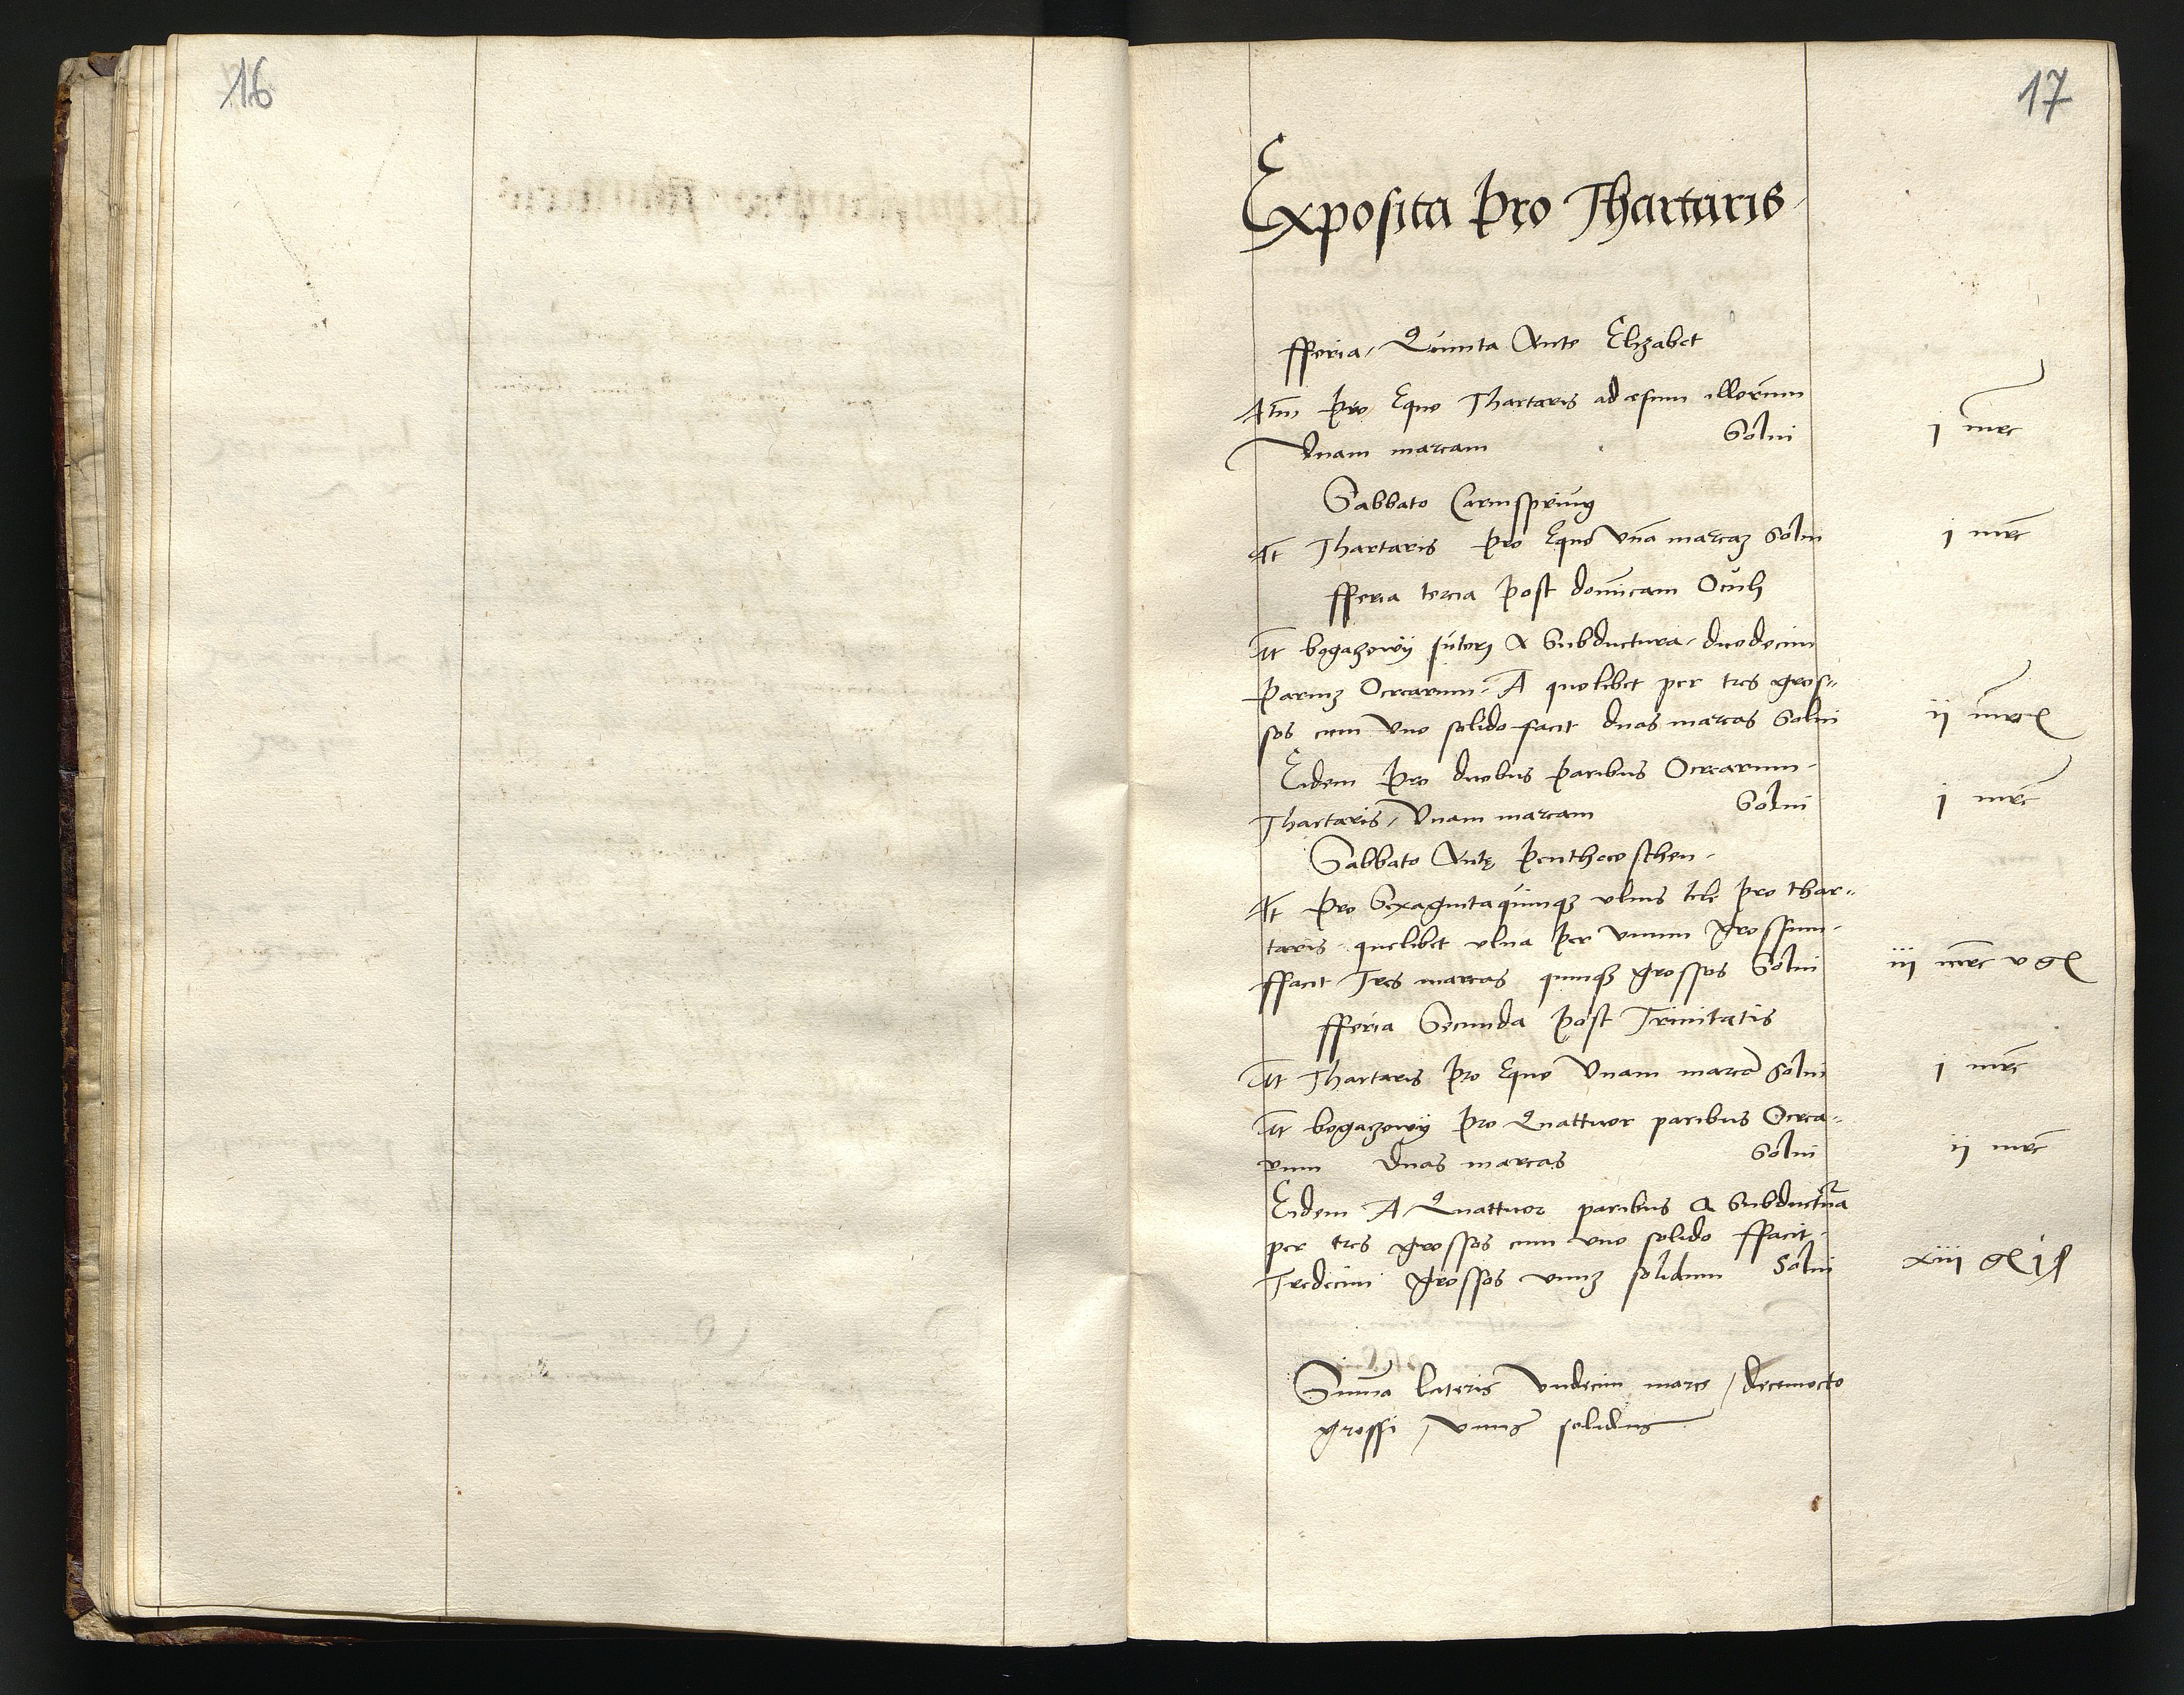 16
17
Exposita pro Thartaris
fferia Quinta Ante Elizabet
Itm pro Equo Thartaris ad esum illorum
Vnam marcam Solui j mrc
Sabbato Carnisprivij
It Thartaris pro Equo Vna marcaz Solui j mrc
fferia tercia post dominicam Oculi
It bogaczowij sutori A Subductura duodecim
pariuz Ocrearum A quolibet per tres gros
sos cum Vno solido facit duas marcas Solui ij mrc
Eidem pro duobus paribus Ocrearum
Thartaris Vnam marcam Solui j mrc
Sabbato Ante penthecosthen
It pro Sexagintaquinqz vlnis tele pro thar
taris quelibet vlna per vnum grossum
ffacit Tres marcas quinqz grossos Solui iij mrc v g
fferia Secunda post Trinitatis
It Thartaris pro Equo Vnam marca Solui j mrc
It bogaczowij pro Quattuor paribus Ocrea
rum duas marcas Solui ij mrc
Eidem A Quattuor paribus A Subductura
per tres grossos cum vno solido ffacit
Tredecim grossos vnuz solidum Solui xiij g j ß
Summa lateris Vndecim marce / decemocto
grossi / Vnus solidus